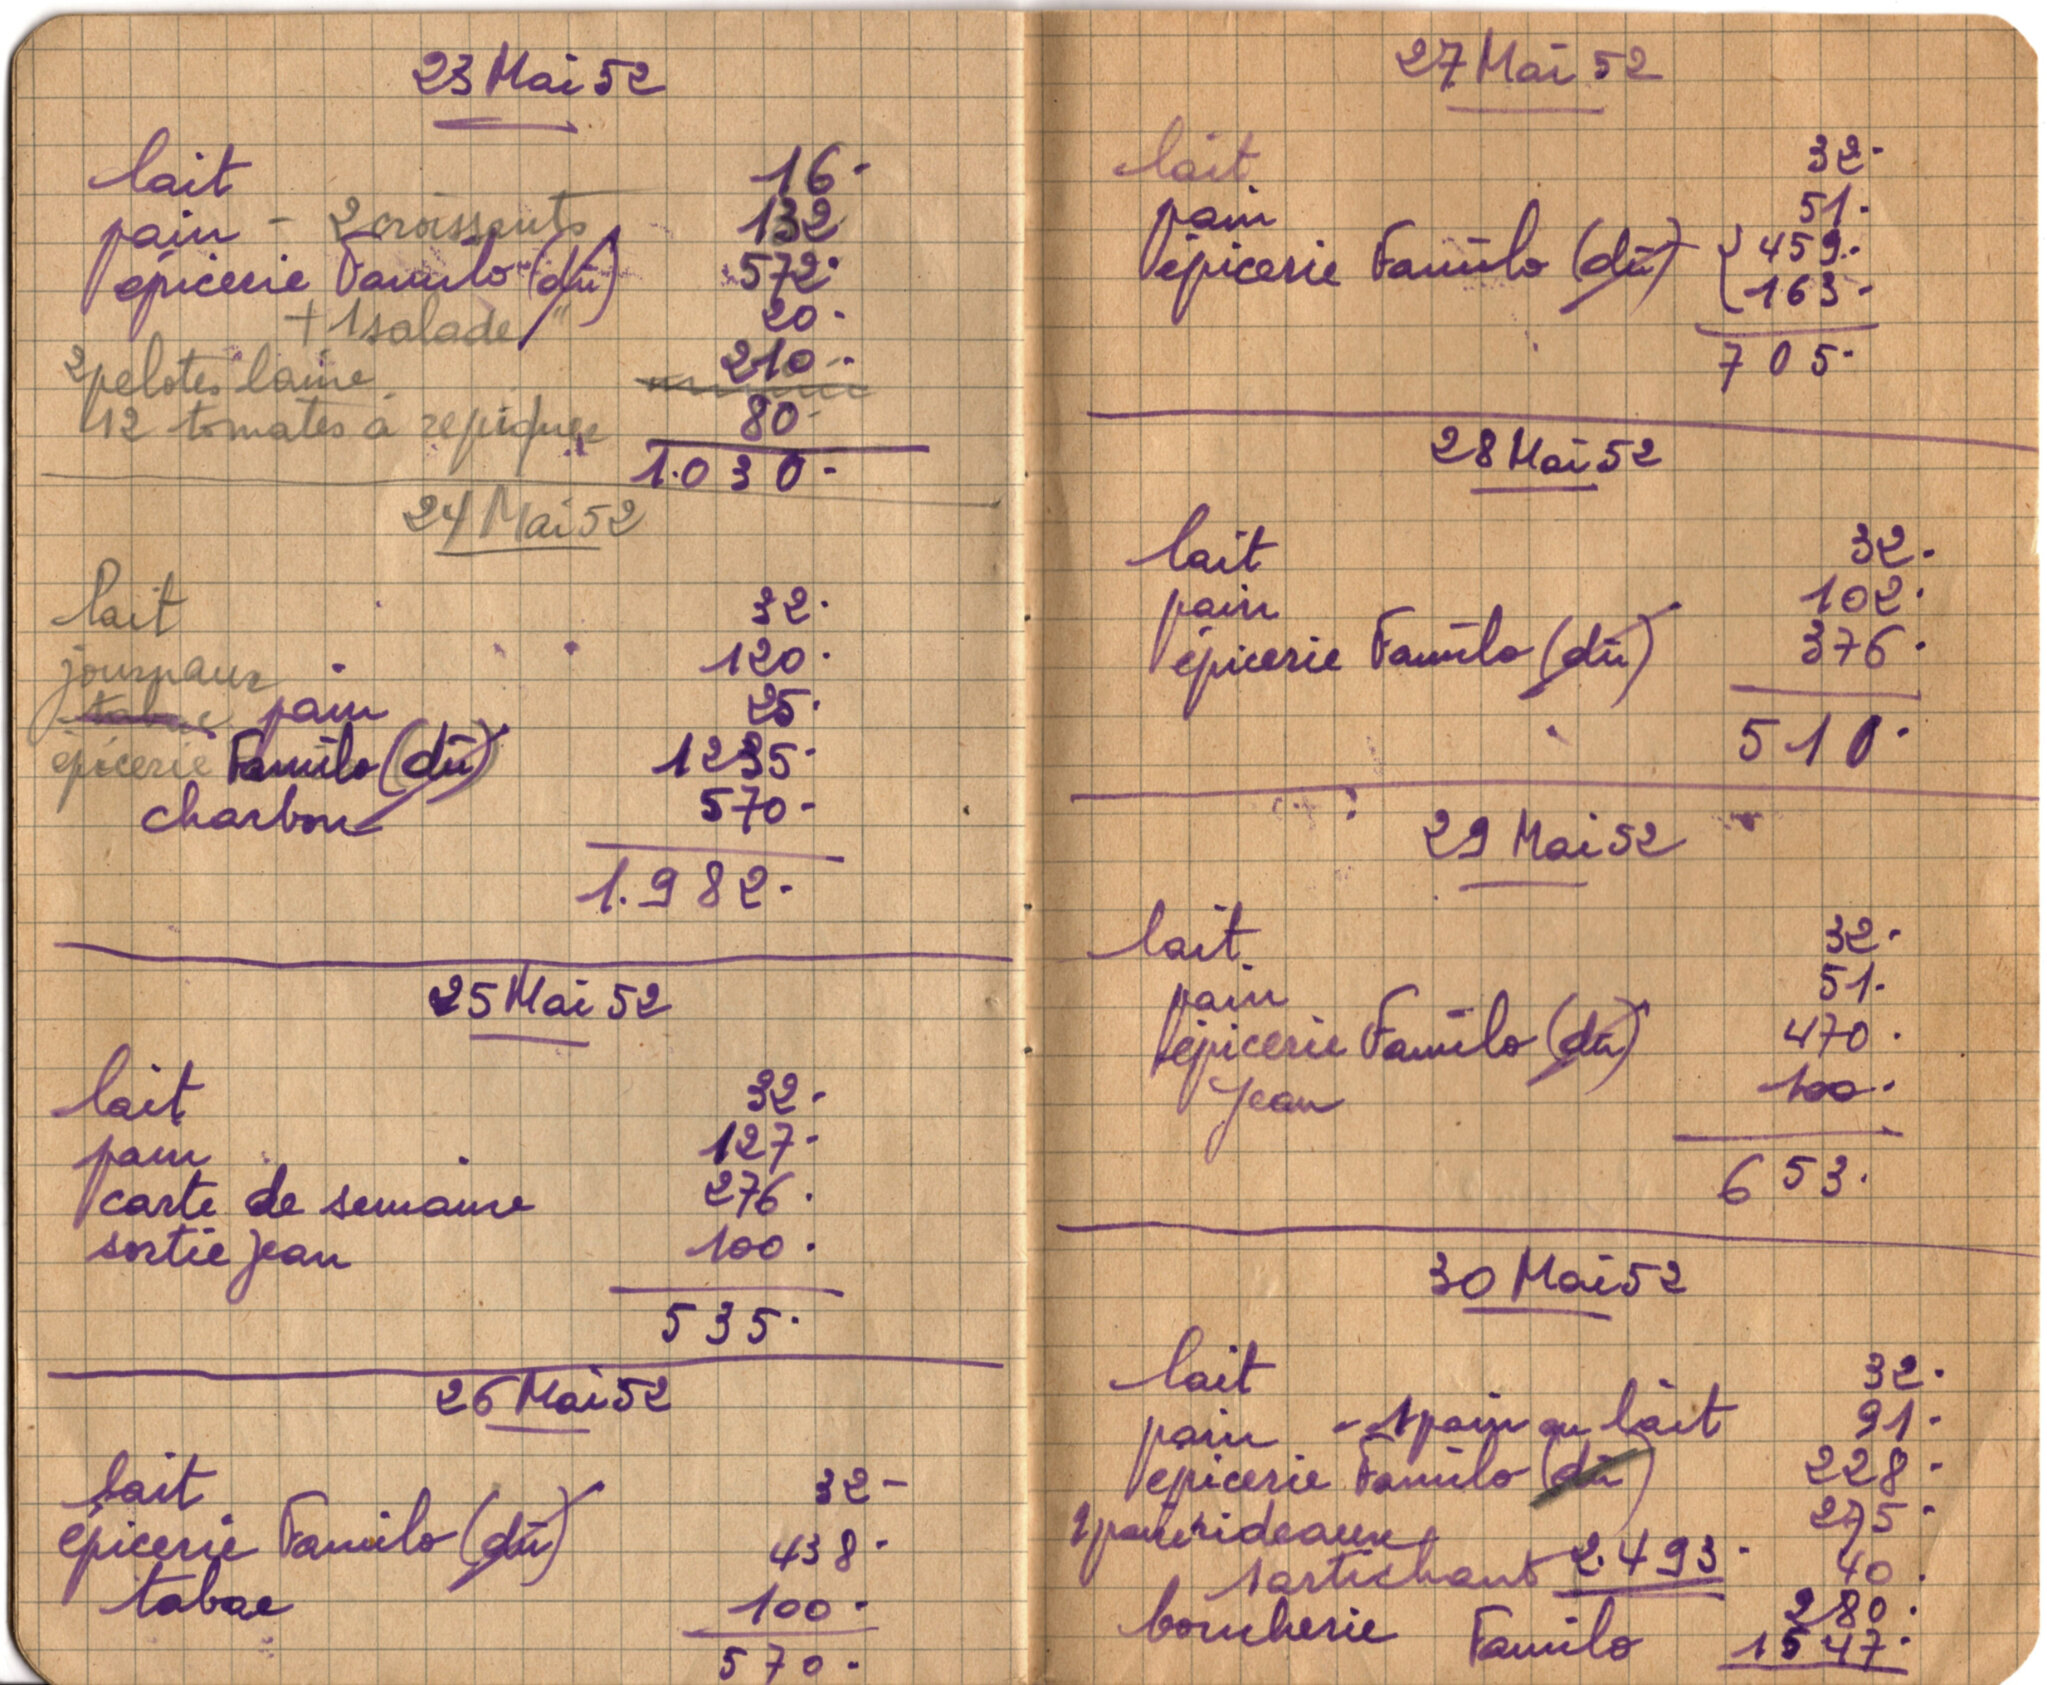 23 Mai 52
lait 16.
pain - 2 croissants 132
épicerie Familo (dû) 572.
+ 1 salade " 20.
2 pelotes laine 210.
12 tomates à repiquer 80
1.030.
24 Mai 52
lait 32.
journaux 120.
tabac pain 25.
épicerie Familo (dû) 1235.
charbon 570.
1.982.
25 Mai 52
lait 32.
pain 127.
carte de semaine 276.
sortie Jean 100.
535.
26 Mai 52
lait 32-
épicerie Familo (dû) 438.
tabac 100.
570.
27 Mai 52
lait 32.
pain 51.
épicerie Familo (dû) { 459.
163.
705.
28 Mai 52
lait 32.
pain 102.
épicerie Familo (dû) 376.
510.
29 Mai 52
lait 32.
pain 51.
épicerie Familo (dû) 470.
Jean 100.
653.
30 Mai 52
lait 32.
pain - 1 pain au lait 91.
épicerie Familo (dû) 228.
rideaux 275.
1 artichaut 2.493. 40.
boucherie 280.
Familo 1547.